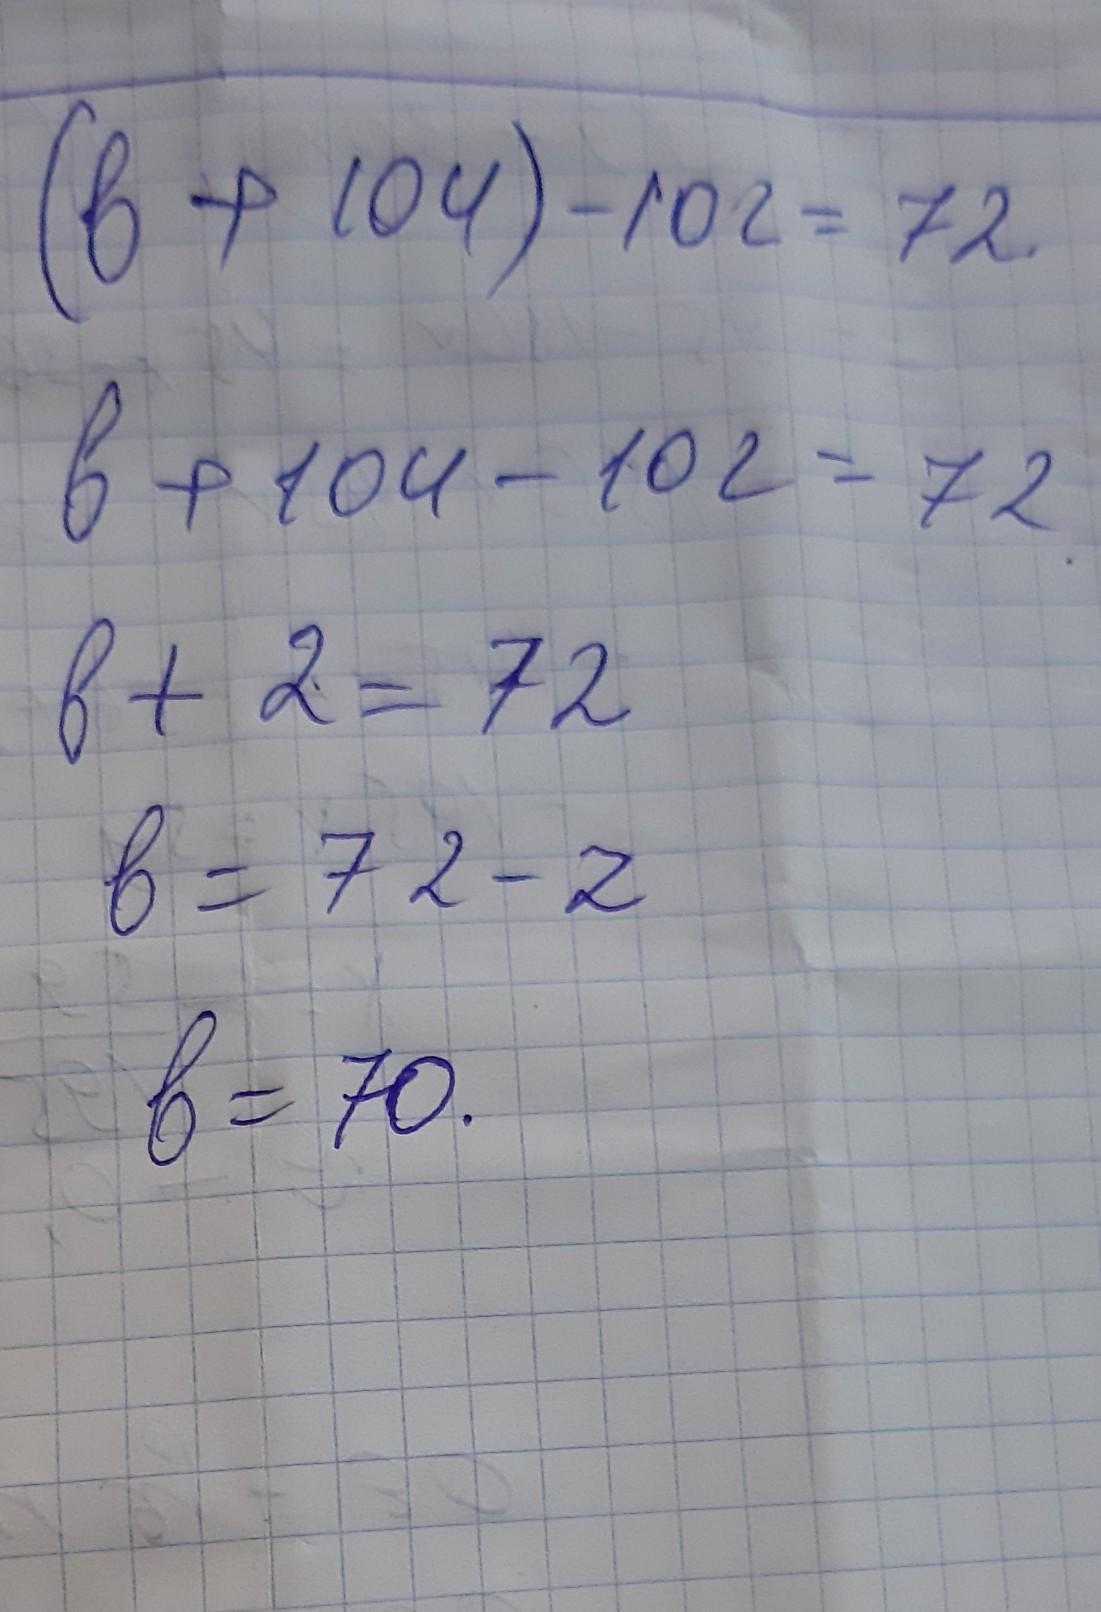 (b + 104) - 102 = 72.
b + 104 - 102 = 72
b + 2 = 72
b = 72 - 2
b = 70.